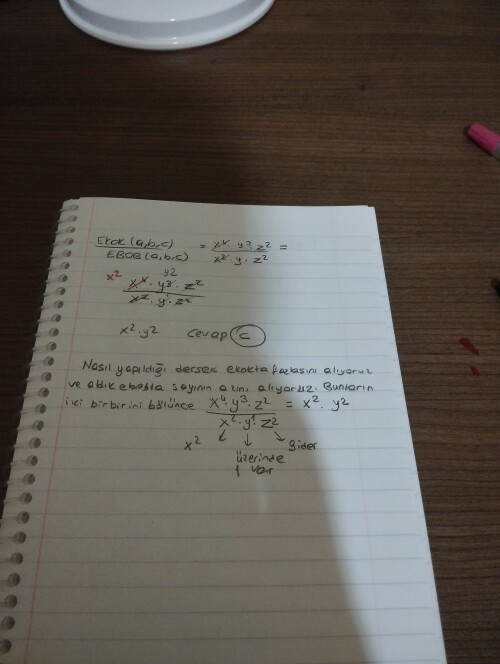 EKOK(a,b,c) / EBOB(a,b,c) = x⁴·y³·z² / x²·y·z² =
x² y2
x⁴·y³·z² / x²·y¹·z²
x²·y² Cevap C
Nasıl yapıldığı dersek ekokta fazlasını alıyoruz
ebobta sayının azını alıyoruz. Bunların
iki birbirini bölünce x⁴·y³·z² / x²·y¹·z² = x²·y²
x² ↙ ↓ ↘ gider
üzerinde
1 var